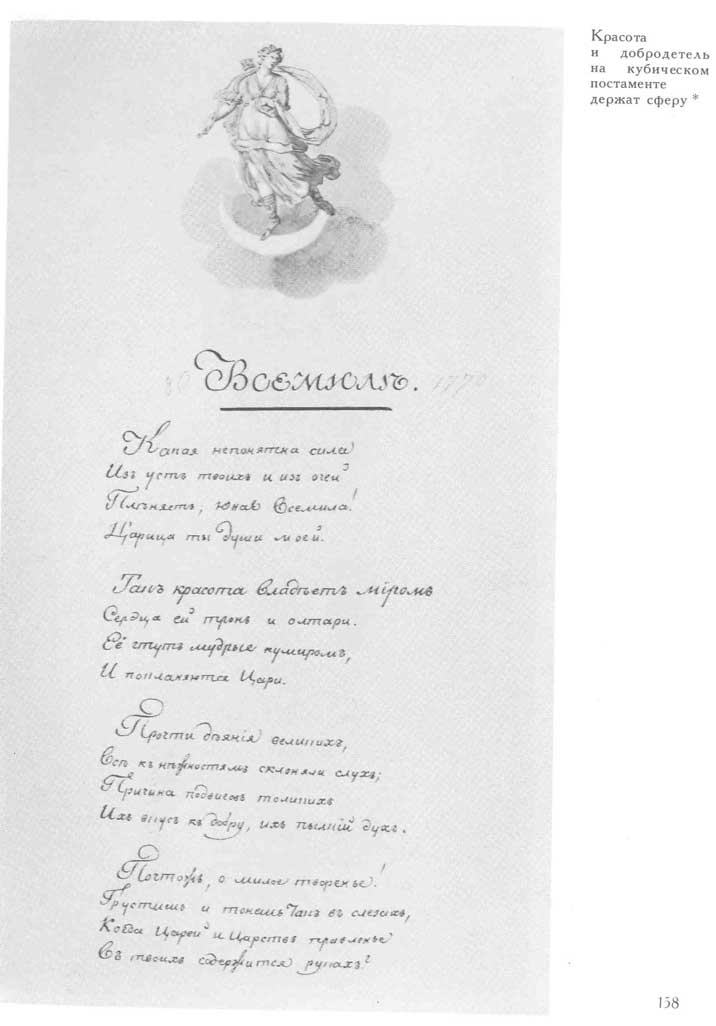 Красота
и добродетель
на кубическом
постаменте
держат сферу *
Всемилѣ. 1770
Какая непонятна сила
Изъ устъ твоихъ и изъ очей
Плѣняетъ, юная Всемила!
Царица ты души моей.
Такъ красота владѣетъ міромъ
Сердца ей тронъ и олтари.
Её чтутъ мудрые кумиромъ,
И покланяются Цари.
Прочти дѣянія великихъ,
Всѣ къ нѣжностямъ склоняли слухъ;
Причина подвиговъ толикихъ
Ихъ вкусъ къ добру, ихъ пылкій духъ.
Почтожъ, о милое творенье!
Грустишь и тонешь такъ въ слезахъ,
Когда Царей и Царствъ правленье
Въ твоихъ содержится рукахъ?
158